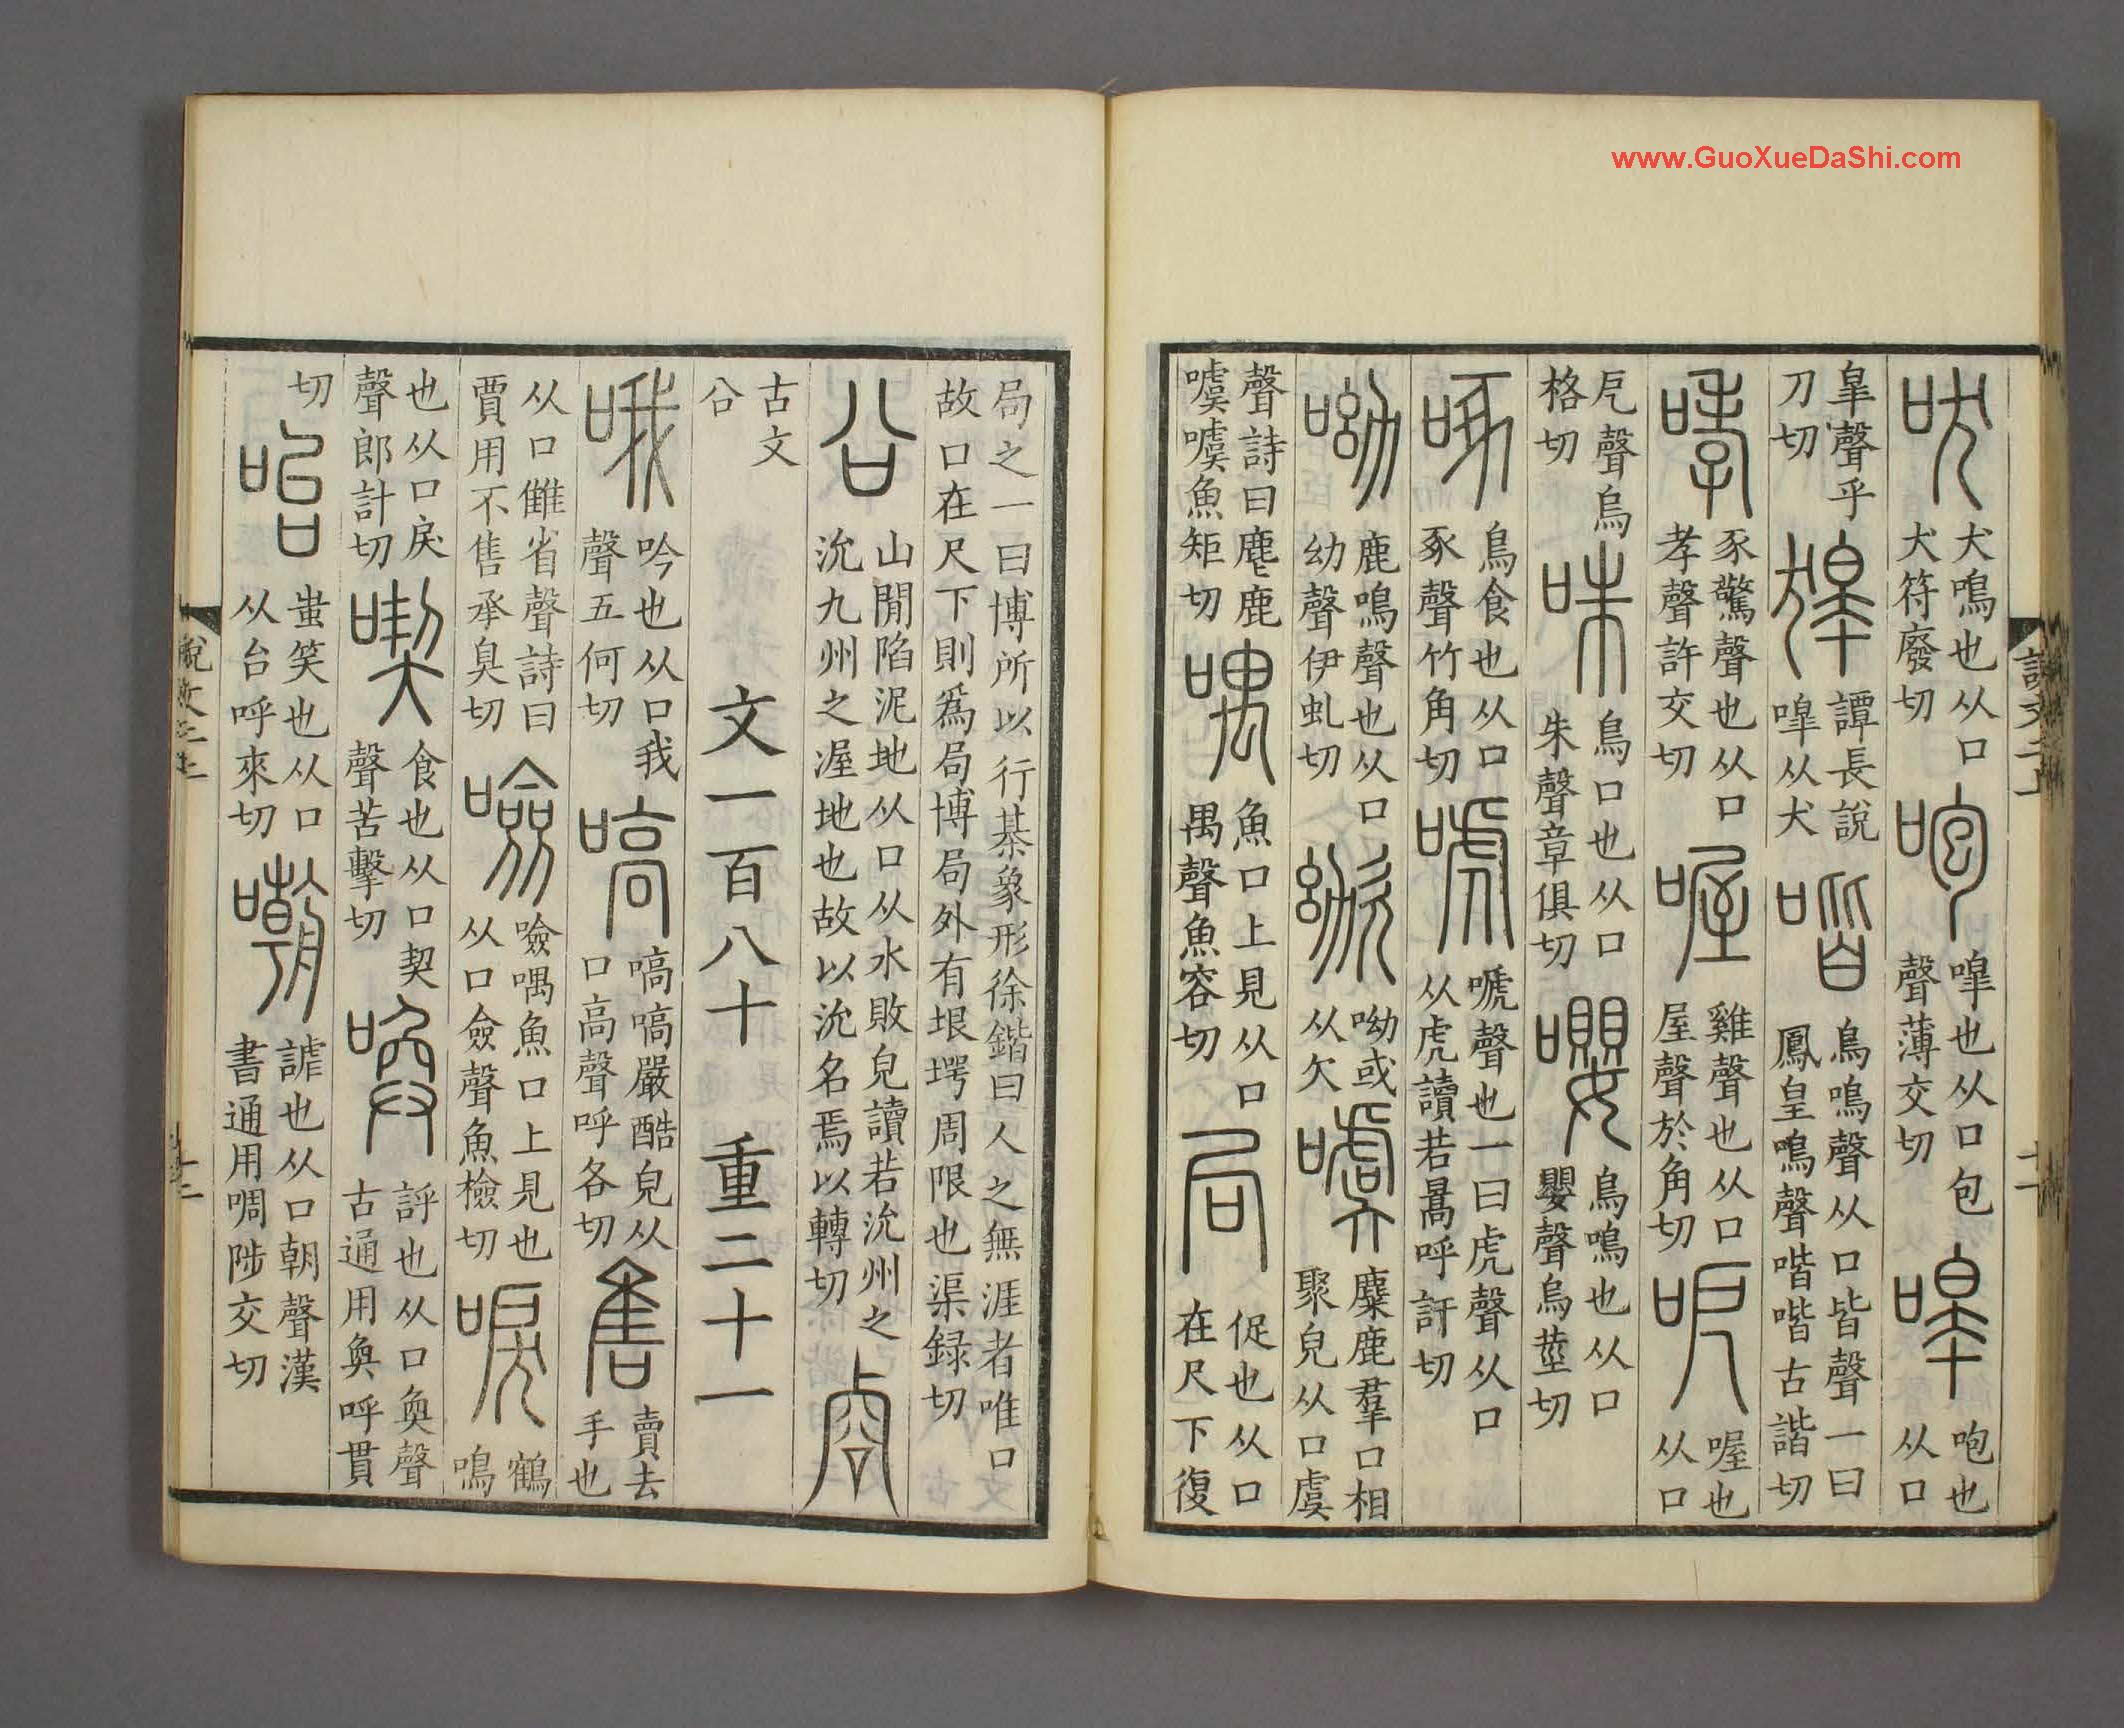 www.GuoXueDaShi.com
吠犬鳴也从口犬符廢切咆嘷也从口包聲薄交切嘷咆也从口
皐聲乎刀切獋譚長說嘷从犬喈鳥鳴聲从口皆聲一曰鳳皇鳴聲喈喈古諧切
哮豕驚聲也从口孝聲許交切喔雞聲也从口屋聲於角切呝喔也从口
戹聲烏格切咮鳥口也从口朱聲章俱切嚶鳥鳴也从口嬰聲烏莖切
啄鳥食也从口豖聲竹角切唬嗁聲也一曰虎聲从口从虎讀若暠呼訏切
呦鹿鳴聲也从口幼聲伊虬切𣢜呦或从欠噳麋鹿羣口相聚皃从口虞
聲詩曰麀鹿噳噳魚矩切喁魚口上見从口禺聲魚容切局促也从口在尺下復
局之一曰博所以行棊象形徐鍇曰人之無涯者唯口故口在尺下則爲局博局外有垠堮周限也渠録切
㕣山閒陷泥地从口从水敗皃讀若沇州之沇九州之渥地也故以沇名焉以轉切
古文㕣 文一百八十 重二十一
哦吟也从口我聲五何切嗃嗃嗃嚴酷皃从口高聲呼各切售賣去手也
从口雔省聲詩曰賈用不售承臭切噞噞喁魚口上見也从口僉聲魚檢切唳鶴鳴
也从口戾聲郎計切喫食也从口契聲苦擊切喚評也从口奐聲古通用奐呼貫
切咍蚩笑也从口从台呼來切嘲謔也从口朝聲漢書通用啁陟交切
說文二上